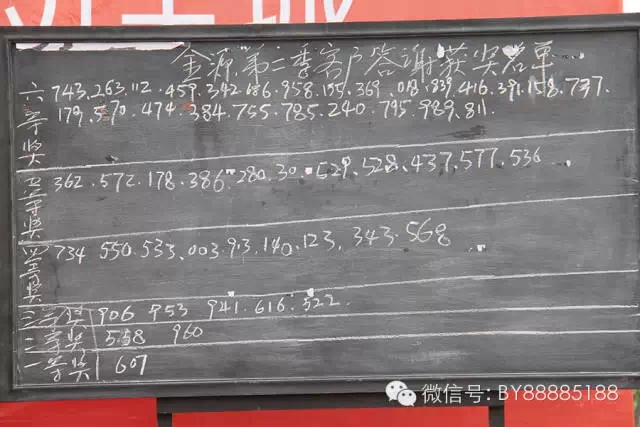 金源第二季客户答谢获奖名单
六等奖 743.263.112.459.342.686.958.155.369.018.839.416.391.158.737.
179.570.474.384.755.785.240.795.989.811.
五等奖 362.572.178.386.280.30.529.528.437.577.536
四等奖 734 550.533.003.913.140.123.343.568
三等奖 906 953 941.616.522.
二等奖 558 960
一等奖 607
微信号: BY88885188